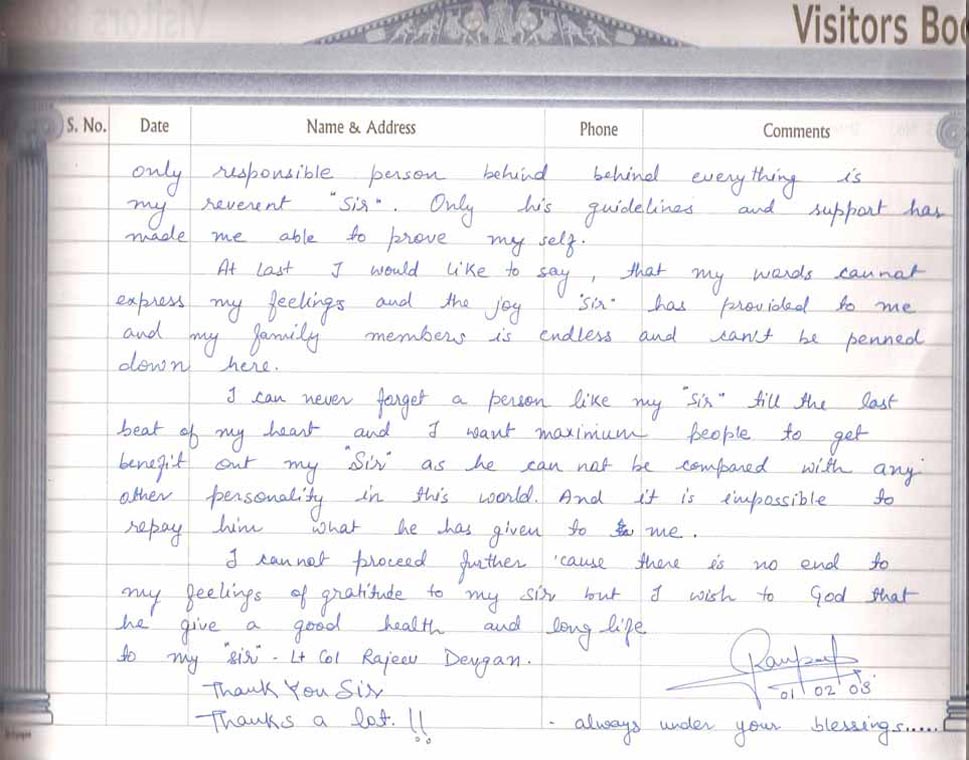 Visitors Boo
S. No. Date Name & Address Phone Comments
only responsible person behind behind everything is
my reverent "Sir". Only his guidelines and support has
made me able to prove my self.
At last I would like to say, that my words cannot
express my feelings and the joy "sir" has provided to me
and my family members is endless and can't be penned
down here.
I can never forget a person like my "Sir" till the last
beat of my heart and I want maximum people to get
benefit out my "Sir" as he can not be compared with any
other personality in this world. And it is impossible to
repay him what he has given to me.
I cannot proceed further 'cause there is no end to
my feelings of gratitude to my sir but I wish to God that
he give a good health and long life
to my "sir" - Lt Col Rajeev Devgan.
01/02/08
Thank You Sir
Thanks a lot.!! - always under your blessings.....